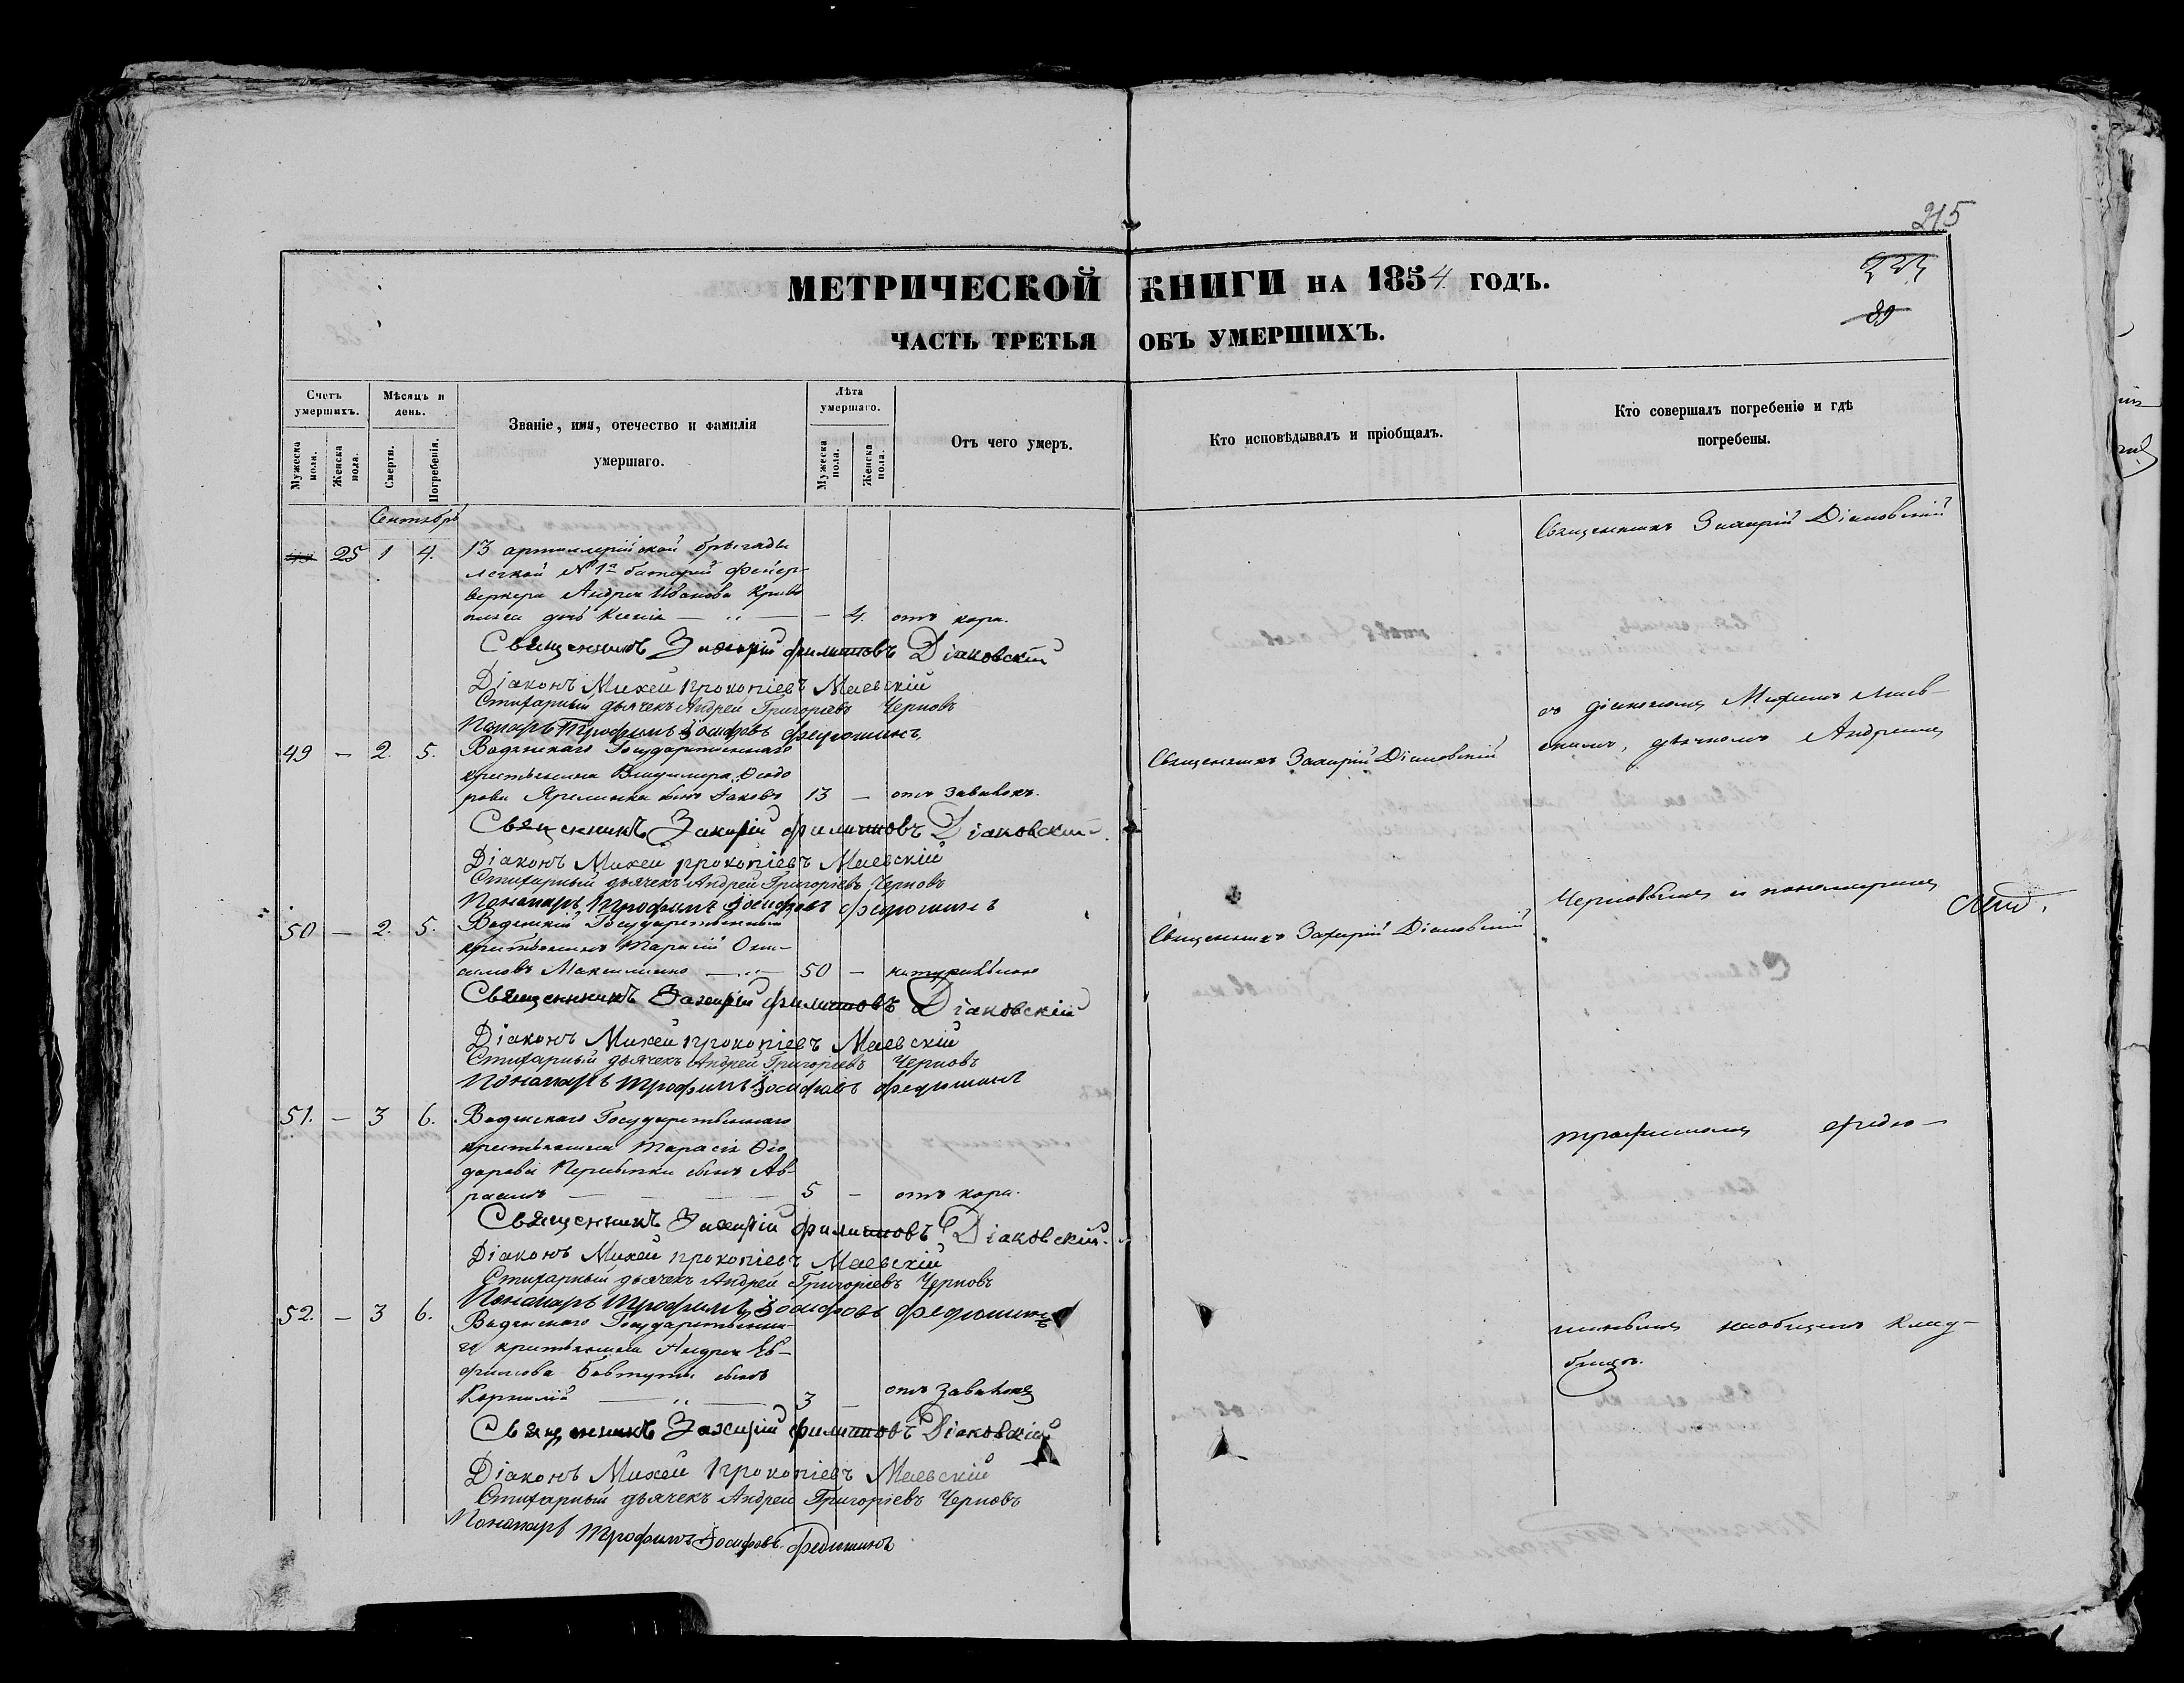 215
МЕТРИЧЕСКОЙ КНИГИ НА 1854 ГОДЪ.
89
ЧАСТЬ ТРЕТЬЯ ОБЪ УМЕРШИХЪ.
Счетъ умершихъ.
Мѣсяцъ и день.
Званіе, имя, отечество и фамилія умершаго.
Лѣта умершаго.
Отъ чего умеръ.
Кто исповѣдывалъ и пріобщалъ.
Кто совершалъ погребеніе и гдѣ погребены.
Мужеска пола.
Женска пола.
Смерти.
Погребенія.
Мужеска пола.
Женска пола.
Сентябрь
Священникъ Захарій Діаковскій
25 1 4. 13 артиллерійской бригады
легкой № 1й батареи Фейер-
веркера Андрея Иванова
дочь Ксенія — „ — — 4. отъ кори.
Священникъ Захарій Филиповъ Діаковскій
Діаконъ Михей Прокопіевъ Маевскій
Стихарный дьячекъ Андрей Григоріевъ Черновъ
Пономарь Трофимъ Іосифовъ Федюшинъ
съ діакономъ Михеемъ Маев-
скимъ, дьячкомъ Андреемъ
49 — 2. 5. Государственнаго
крестьянина Владимира Ѳеодо
рова сынъ Іаковъ 13 — отъ завалокъ.
Священникъ Захарій Діаковскій
Священникъ Захарій Филиповъ Діаковскій
Діаконъ Михей Прокопіевъ Маевскій
Стихарный дьячекъ Андрей Григоріевъ Черновъ
Пономарь Трофимъ Іосифовъ Федюшинъ
Черновымъ и пономаремъ
50 — 2. 5. Государственный
крестьянинъ Тарасій
Максименко — „ — 50 — натурально
Священникъ Захарій Діаковскій
Священникъ Захарій Филиповъ Діаковскій
Діаконъ Михей Прокопіевъ Маевскій
Стихарный дьячекъ Андрей Григоріевъ Черновъ
Пономарь Трофимъ Іосифовъ Федюшинъ
51. — 3 6. Государственнаго
крестьянина Тарасія Ѳео
дорова сынъ Ав-
раамъ — — — 5 — отъ кори.
Трофимомъ Федю-
Священникъ Захарій Филиповъ Діаковскій
Діаконъ Михей Прокопіевъ Маевскій
Стихарный дьячекъ Андрей Григоріевъ Черновъ
Пономарь Трофимъ Іосифовъ Федюшинъ
52. — 3 6. Государственна-
го крестьянина Андрея Ев-
фимова сынъ
Корнилій — „ — 3 — отъ завалокъ
шинымъ на общемъ клад-
бищѣ.
Священникъ Захарій Филиповъ Діаковскій
Діаконъ Михей Прокопіевъ Маевскій
Стихарный дьячекъ Андрей Григоріевъ Черновъ
Пономарь Трофимъ Іосифовъ Федюшинъ